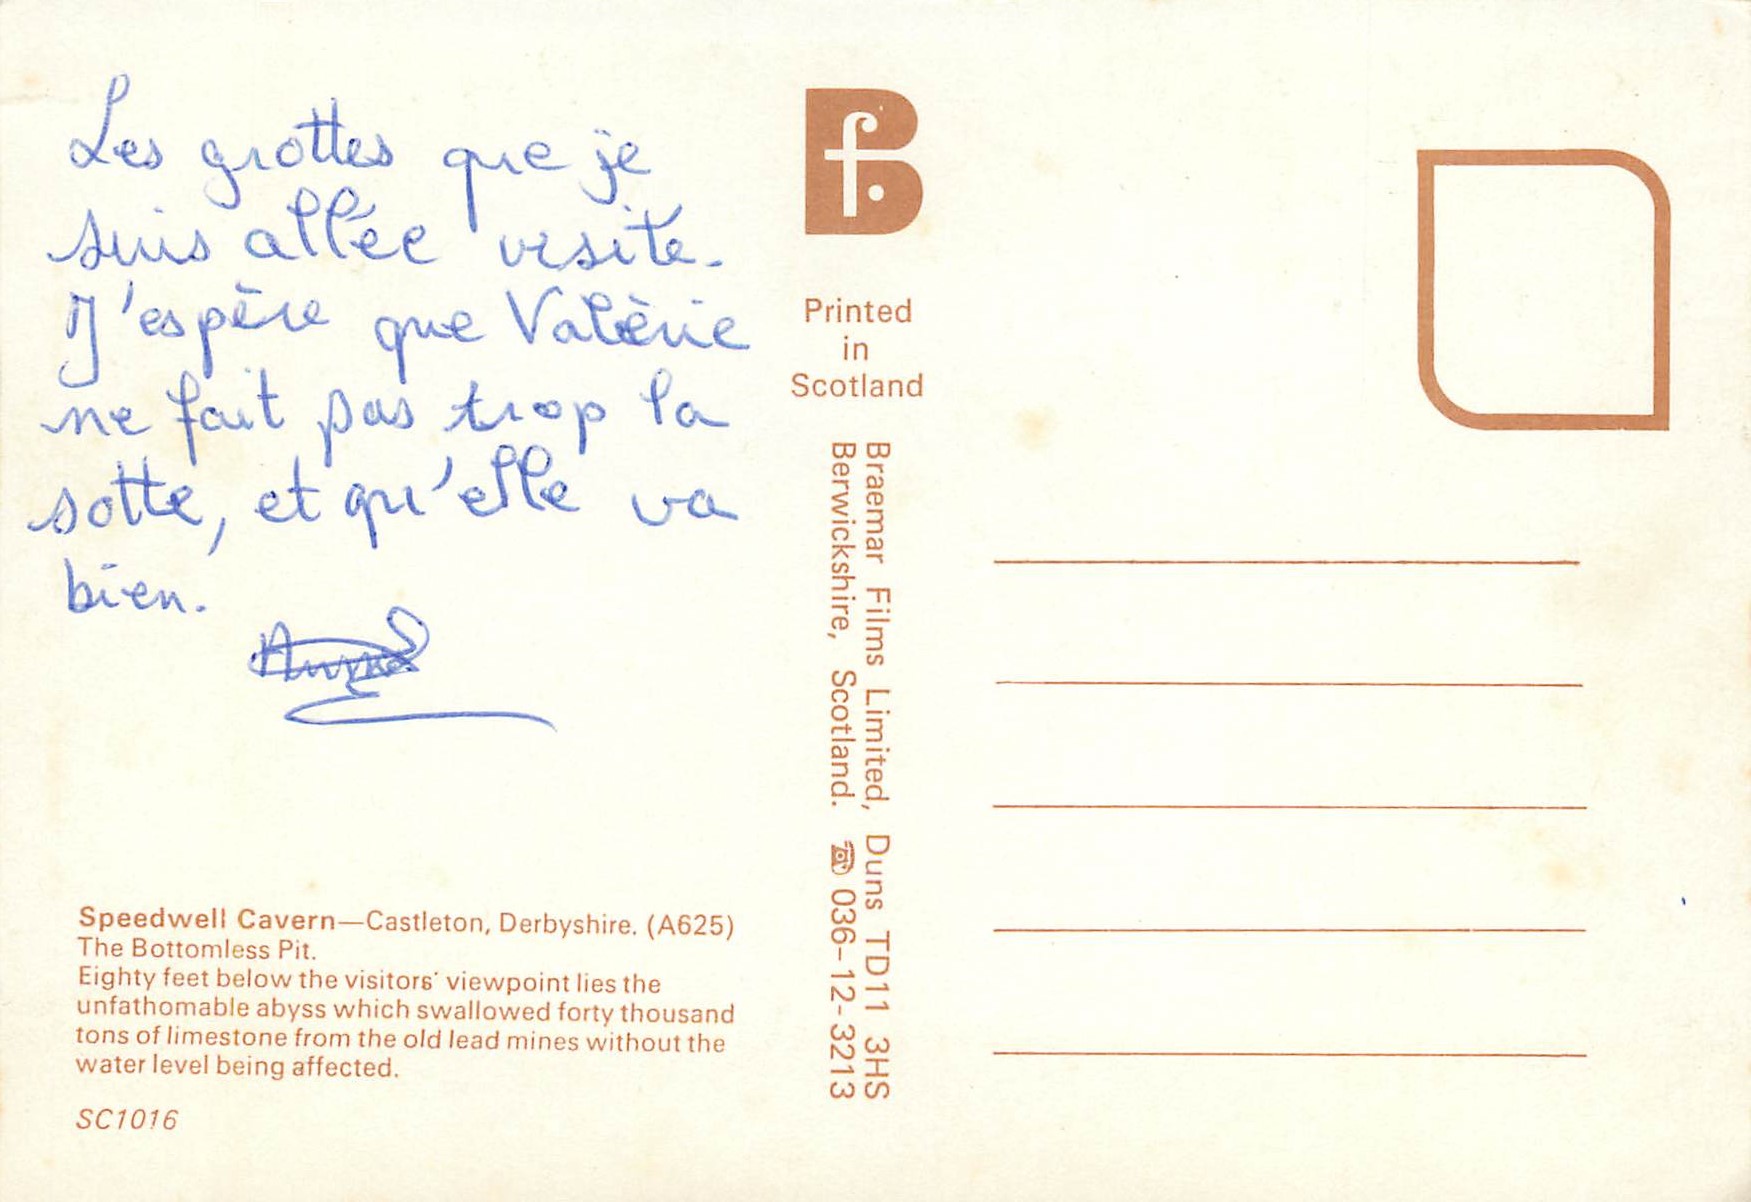 Les grottes que je
suis allée visite.
J'espère que Valèrie
ne fait pas trop la
sotte, et qu'elle va
bien.
Speedwell Cavern—Castleton, Derbyshire. (A625)
The Bottomless Pit.
Eighty feet below the visitors' viewpoint lies the
unfathomable abyss which swallowed forty thousand
tons of limestone from the old lead mines without the
water level being affected.
SC1016
Bf.
Printed
in
Scotland
Braemar Films Limited, Duns TD11 3HS
Berwickshire, Scotland. ☎ 036-12-3213